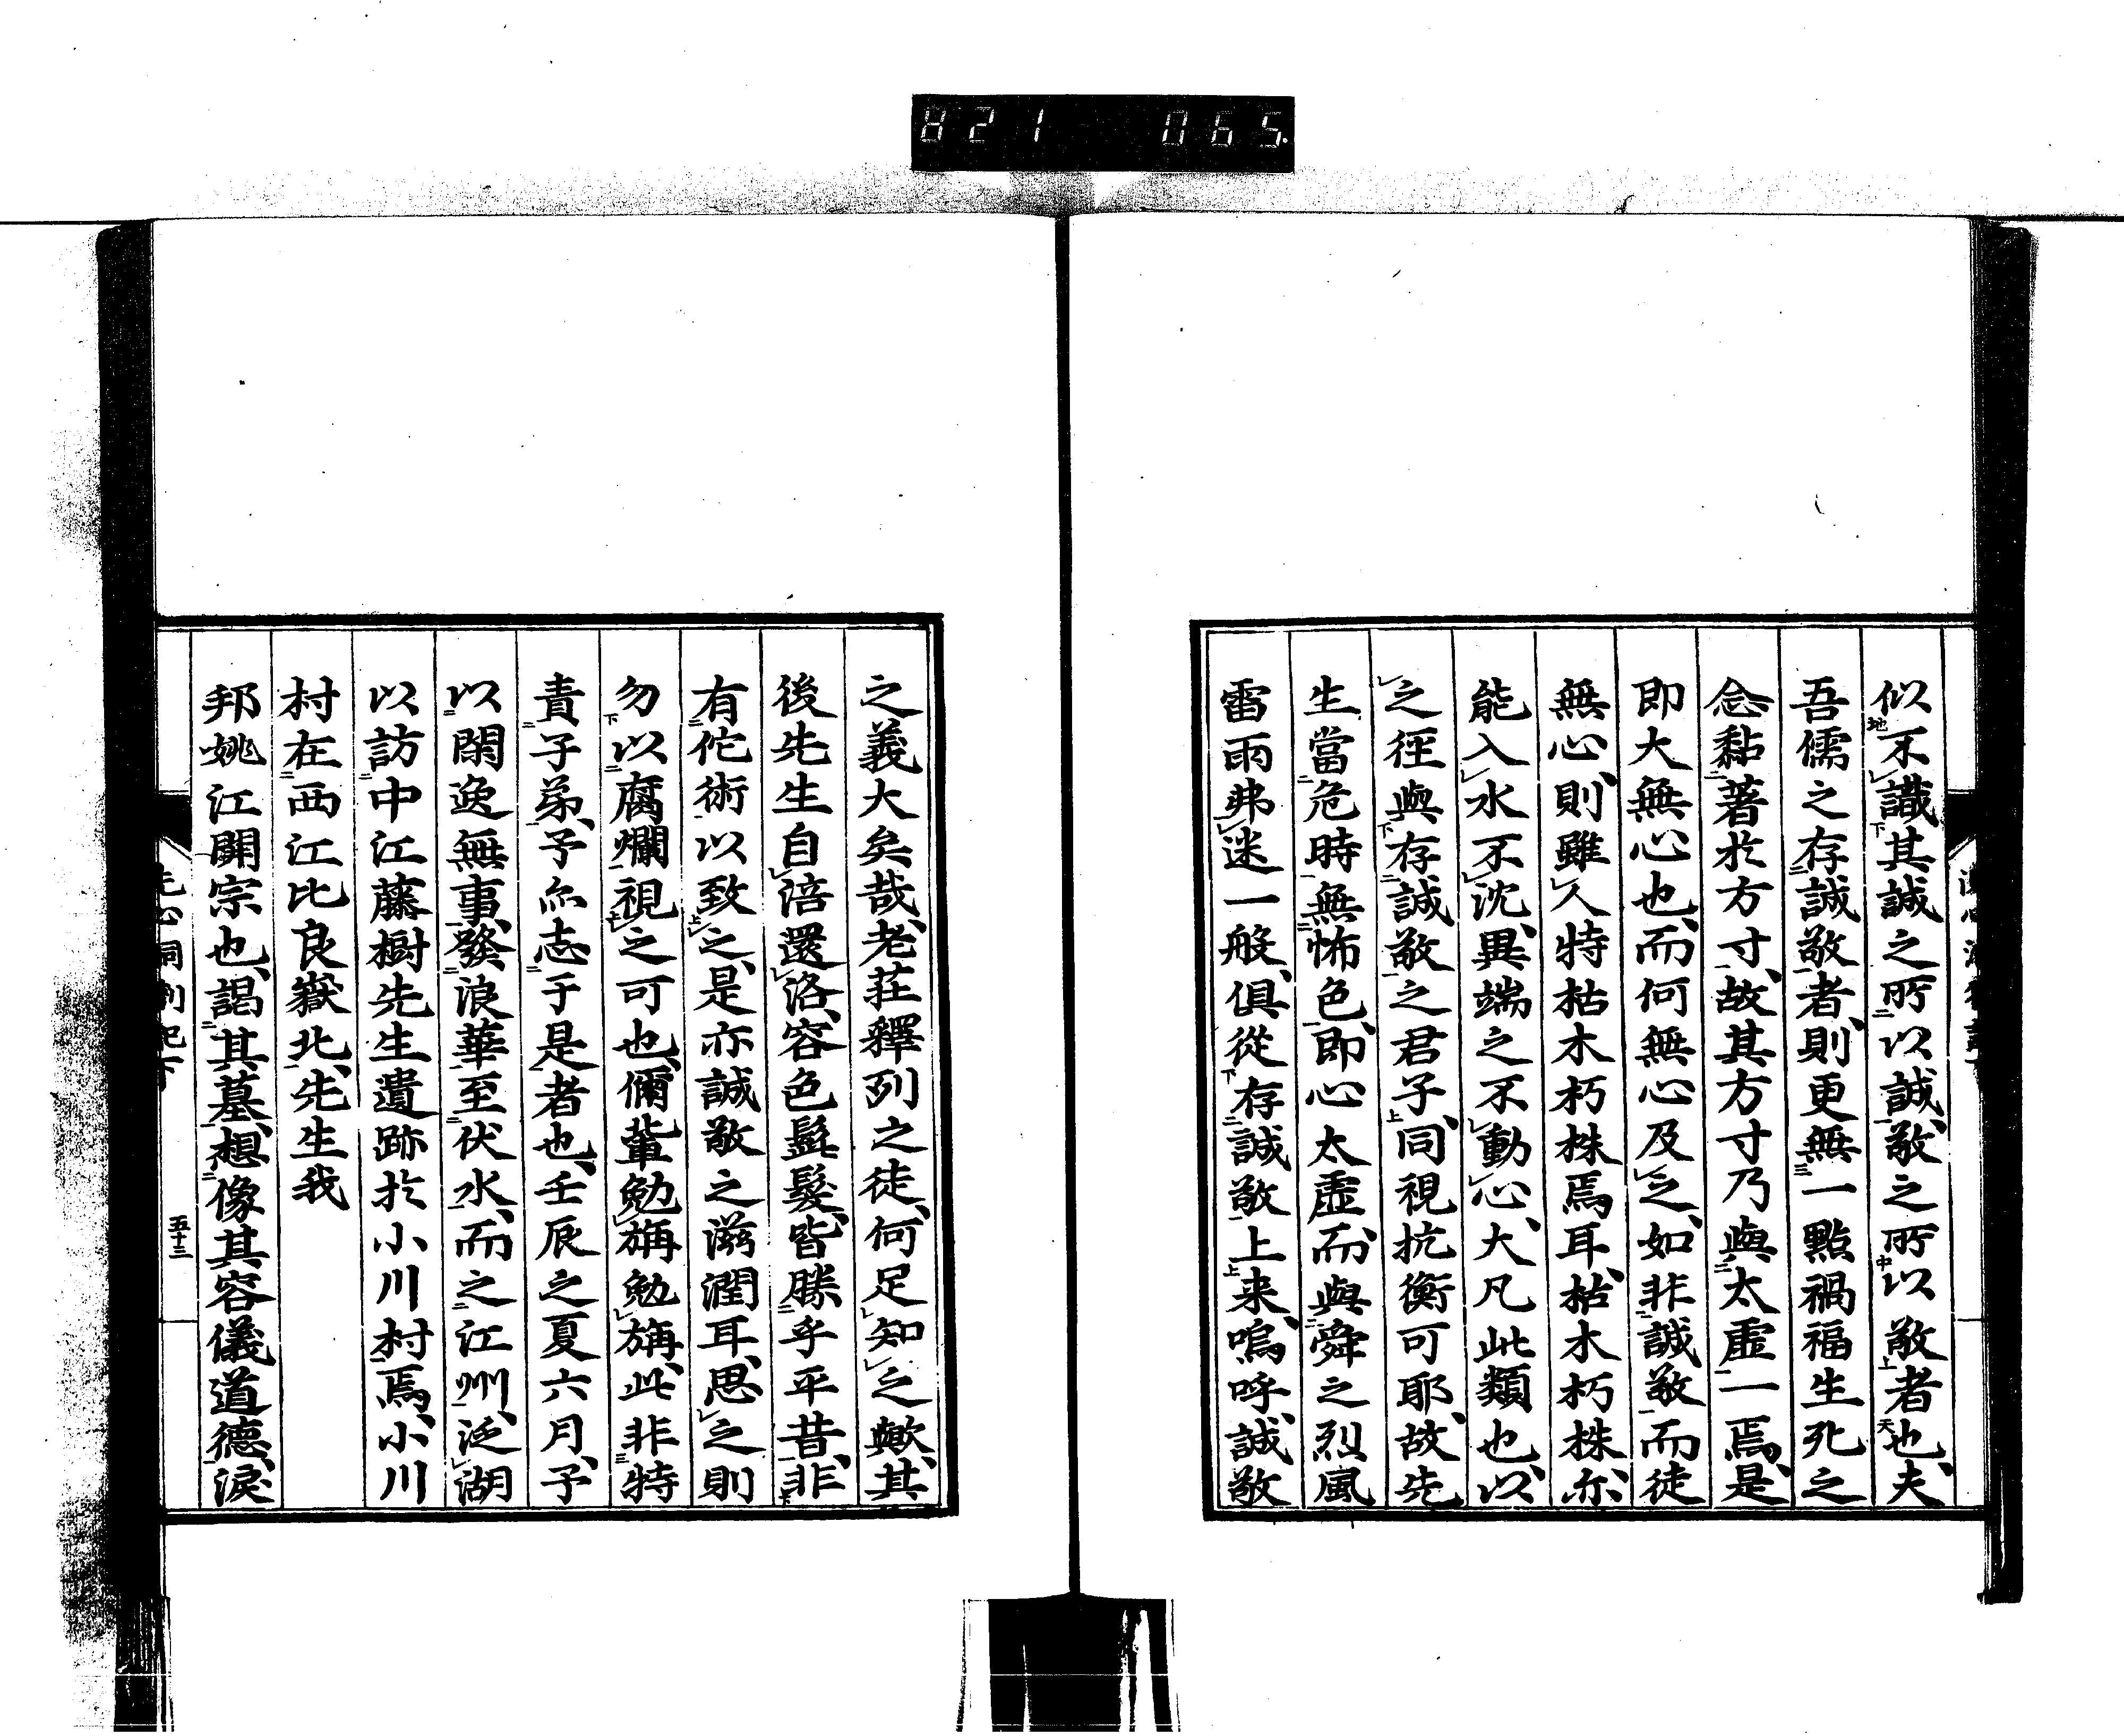 821 065
似不識其誠之所以誠敬之所以敬者也夫
吾儒之存誠敬者則更無一點禍福生死之
念黏著於方寸故其方寸乃與太虛一焉是
即大無心也而何無心及之如非誠敬而徒
無心則雖久特枯木朽株焉耳枯木朽株亦
能入水不沈異端之不動心大凡此類也以
之徑與存誠敬之君子同視抗衡可耶故先
生當危時無怖色即心太虛而與舜之烈風
雷雨弗迷一般俱從存誠敬上来嗚呼誠敬
之義大矣哉老莊釋列之徒何足知之歟其
後先生自涪還洛容色髭髮皆勝乎平昔非
有佗術以致之是亦誠敬之滋潤耳思之則
勿以腐爛視之可也儞輩勉旃勉旃此非特
責子弟予亦志于是者也壬辰之夏六月予
以閑逸無事發浪華至伏水而之江州泛湖
以訪中江藤樹先生遺跡於小川村焉小川
村在西江比良嶽北先生我
邦姚江開宗也謁其墓想像其容儀道德淚
五十三